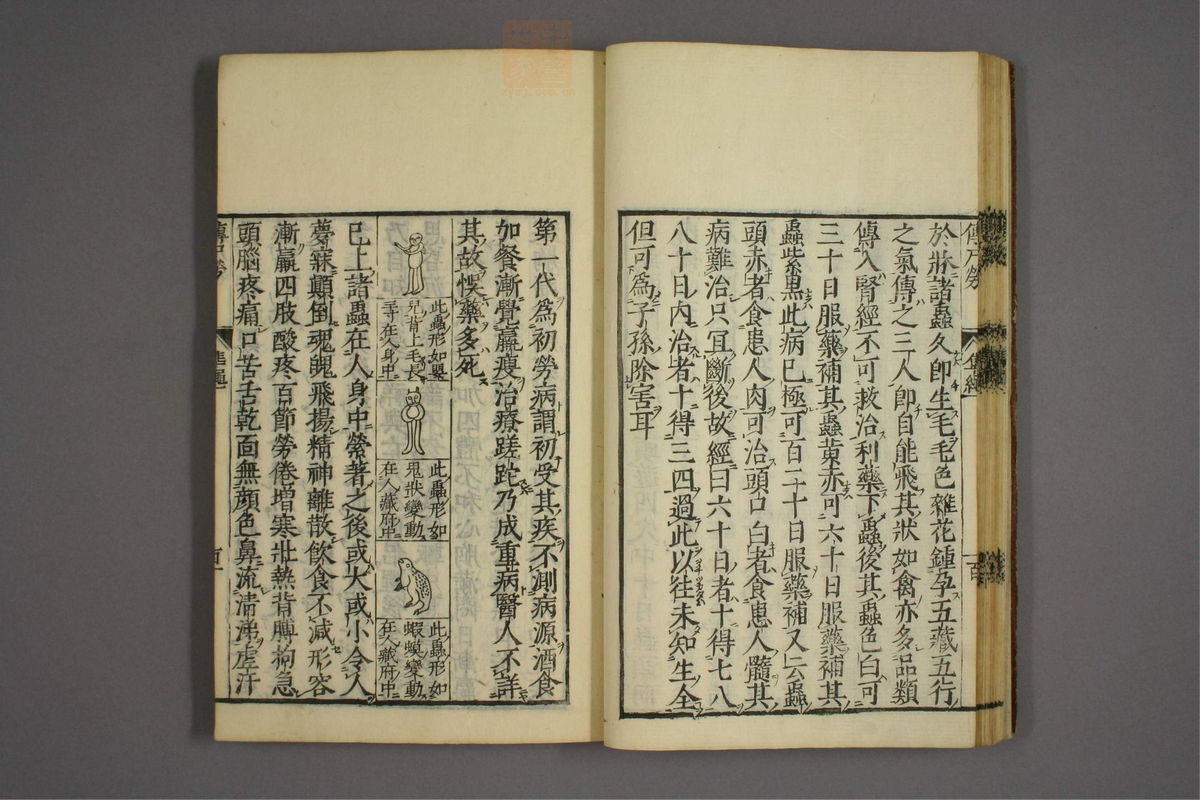 於狀諸蟲久即生毛毛色雜花鍾孕五藏五行
之氣傳之三人即自能飛其狀如禽亦多品類
傳入腎經不可救治利藥下蟲後其蟲色白可
三十日服藥補其蟲黄赤可六十日服藥補其
蟲紫黒此病已極可百二十日服藥補又云蟲
頭赤者食患人肉可治頭口白者食患人髓其
病難治只宜斷後故經曰六十日者十得七八
八十日内治者十得三四過此以往未知生全
但可爲子孫除害耳
第一代爲初勞病謂初受其疾不測病源酒食
加餐漸覺羸瘦治療蹉跎乃成重病醫人不詳
其故悞藥多死
此蟲形如嬰
兒背上毛長
三寸在人身中
此蟲形如
鬼狀變動
在人藏府中
此蟲形如
蝦蟆變動
在人藏府中
已上諸蟲在人身中縈著之後或大或小令人
夢寐顛倒魂魄飛揚精神離散飲食不減形容
漸羸四肢酸疼百節勞倦增寒壯熱背膊拘急
頭腦疼痛口苦舌乾面無顔色鼻流清涕虚汗